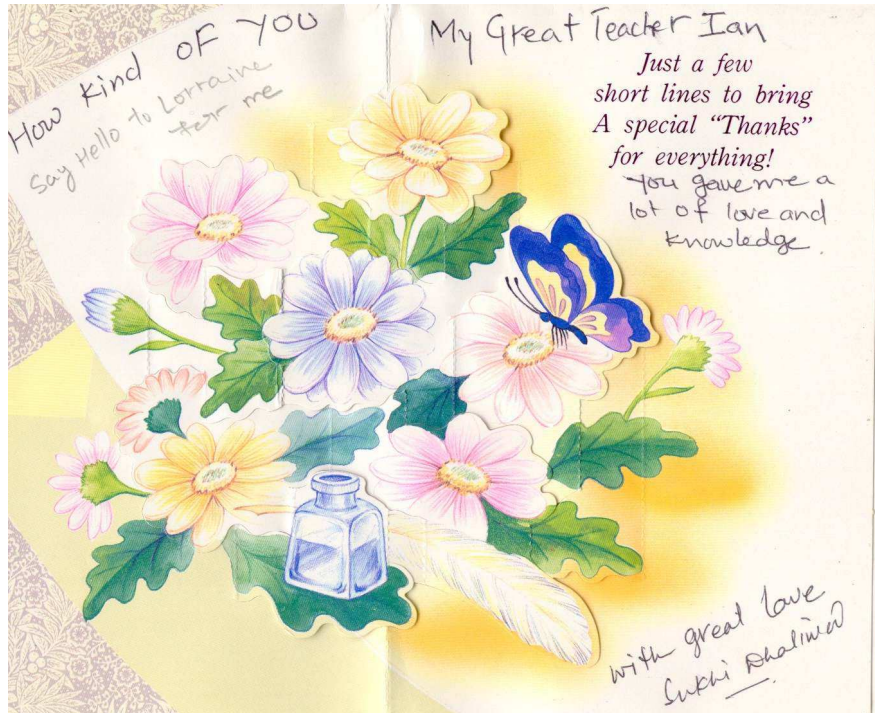 How kind OF YOU
Say Hello to Lorraine
for me
My Great Teacher Ian
Just a few
short lines to bring
A special “Thanks”
for everything!
You gave me a
lot of love and
knowledge.
with great love
Sukhi Dhaliwal